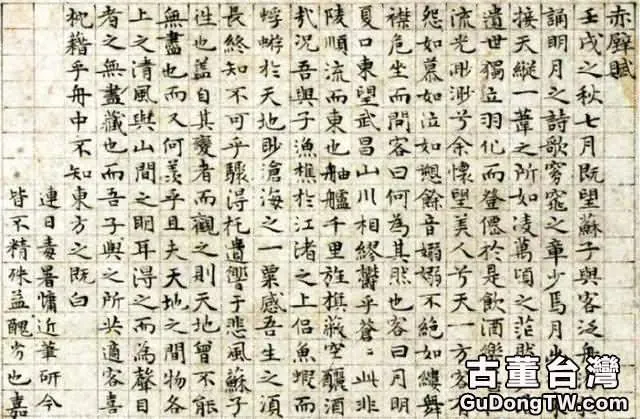 赤壁賦
壬戌之秋七月既望蘇子與客泛舟
誦明月之詩歌窈窕之章少焉月出
接天縱一葦之所如凌萬頃之茫然
遺世獨立羽化而登僊於是飲酒樂
流光渺渺兮余懷望美人兮天一方客
怨如慕如泣如愬餘音嫋嫋不絕如縷舞
襟危坐而問客曰何為其然也客曰月明
夏口東望武昌山川相繆鬱乎蒼〻此非
陵順流而東也舳艫千里旌旗蔽空釃酒
哉況吾與子漁樵於江渚之上侶魚蝦而
蜉蝣於天地眇滄海之一粟感吾生之須
長終知不可乎驟得托遺響于悲風蘇子
性也蓋自其變者而觀之則天地曾不能
無盡也而又何羨乎且夫天地之間物各
上之清風與山間之明耳得之而為聲目
者之無盡藏也而吾子與之所共適客喜
枕藉乎舟中不知東方之既白
連日毒暑慵近筆研今
皆不精殊益醜劣也嘉
古董台灣
GuDongTW.com